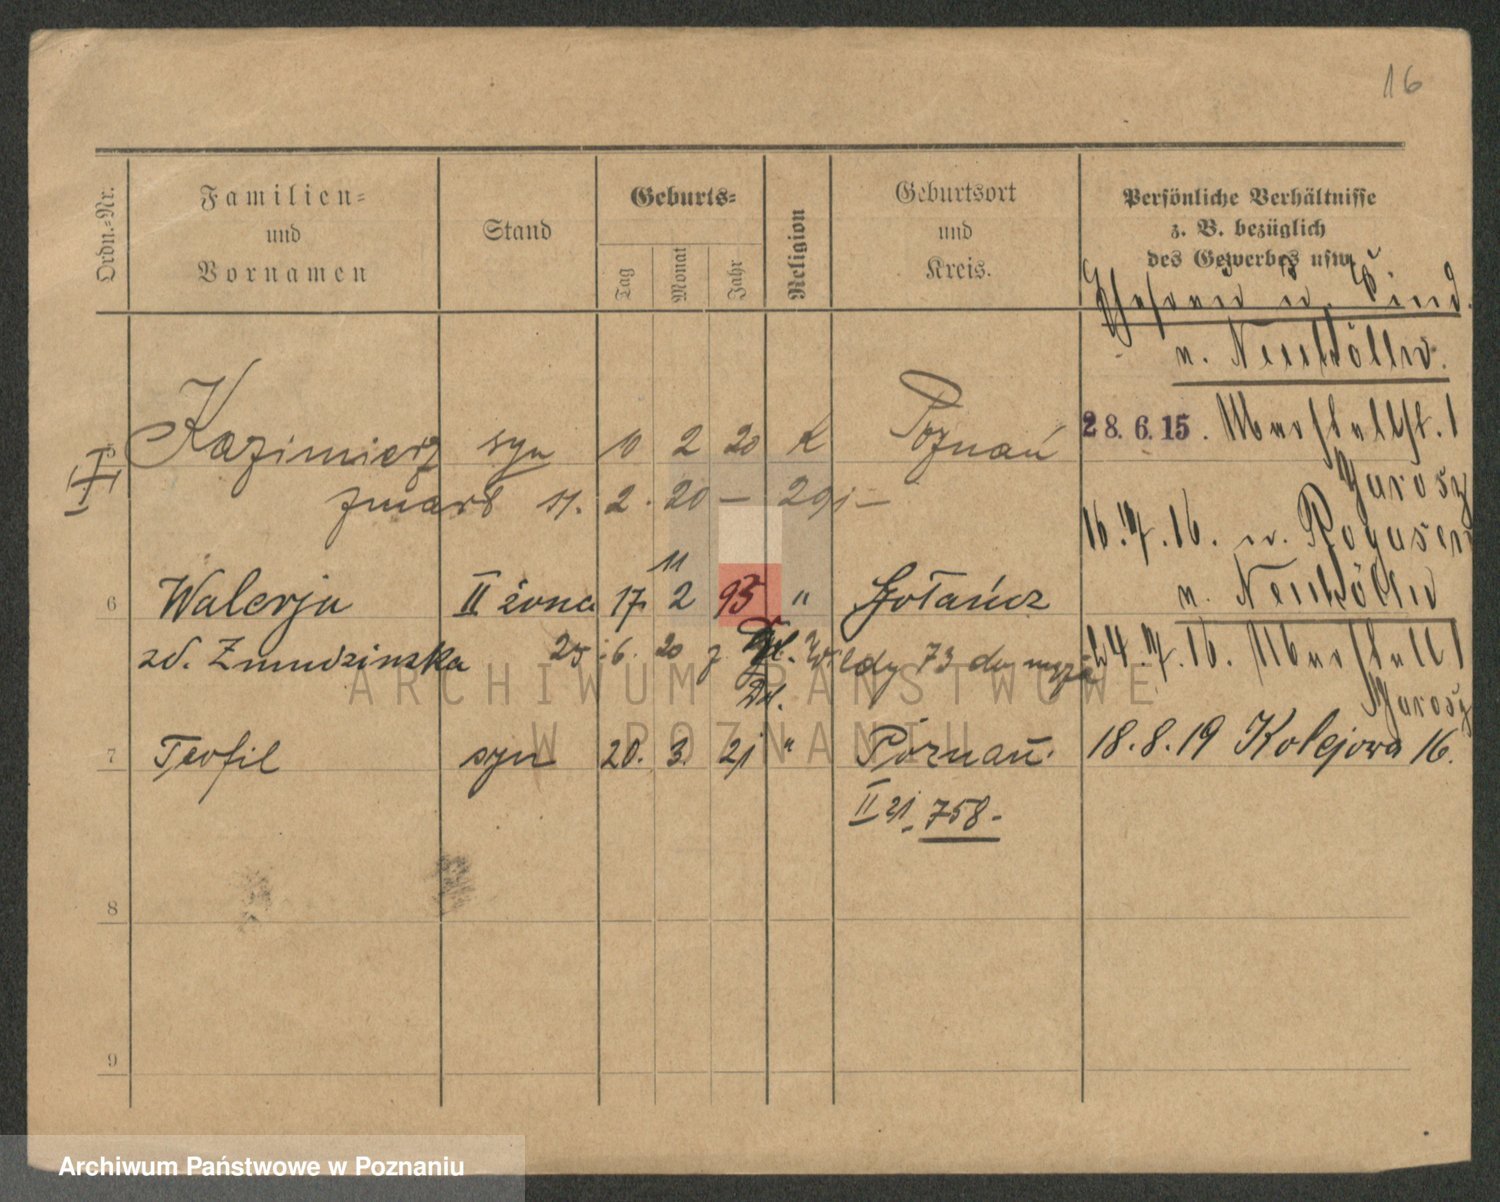 16
Ordn.-Nr.
Familien-
und
Vornamen
Stand
Geburts-
Tag
Monat
Jahr
Religion
Geburtsort
und
Kreis.
Persönliche Verhältnisse
z. B. bezüglich
des Gewerbes usw.
Ehefrau u. Kind.
n. Neukölln.
28. 6. 15. Marstallst. 1
Jarosz
5 Kazimierz syn 10 2 20 K Poznań
zmarł 11. 2. 20 — 291 —
16. 4. 16. n.
n. Neukölln
11
6 Walerja II żona 17 2 95 " Gołańcz
zd. Zmudzinska 25 6. 20 z Wildy 73 do męża
24. 4. 16. Marstall 1
Jarosz
7 Teofil syn 20. 3. 21 " Poznań.
18. 8. 19 Kolejowa 16.
II 21. 758.-
8
9
ARCHIWUM PAŃSTWOWE
W POZNANIU
Archiwum Państwowe w Poznaniu